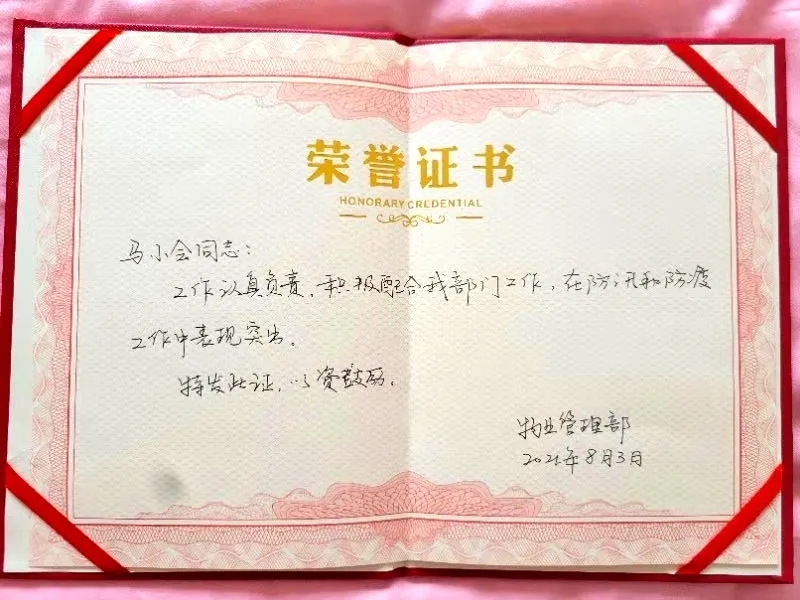 荣誉证书
HONORARY CREDENTIAL
马小会同志：
工作认真负责、积极配合我部门工作，在防汛和防疫
工作中表现突出。
特发此证，以资鼓励。
物业管理部
2021年8月3日